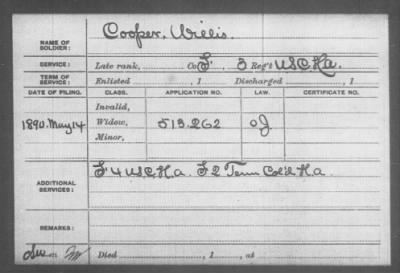 NAME OF SOLDIER: Cooper, Willis.
SERVICE: Late rank, Co. F, 3 Reg't U.S.C.H.A.
TERM OF SERVICE: Enlisted , 1 Discharged , 1
DATE OF FILING. CLASS. APPLICATION NO. LAW. CERTIFICATE NO.
Invalid,
1890. May 14 Widow, 513.262
Minor,
ADDITIONAL SERVICES: F 4 U.S.C.H.A. F 2 Tenn Col'd H.A.
REMARKS:
Died , 1 , at